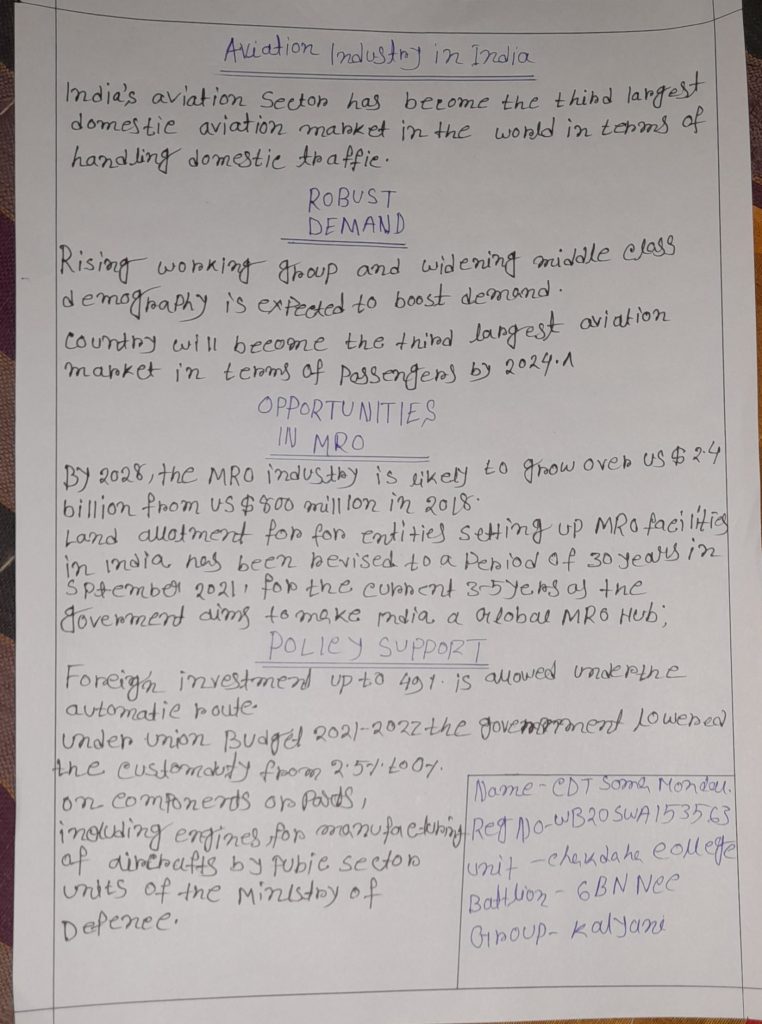 Aviation Industry in India
India's aviation Sector has become the third largest
domestic aviation market in the world in terms of
handling domestic traffic.
ROBUST
DEMAND
Rising working group and widening middle class
demography is expected to boost demand.
Country will become the third largest aviation
market in terms of Passengers by 2024.
OPPORTUNITIES
IN MRO
By 2028, the MRO industry is likely to grow over US $ 2.4
billion from US $ 800 million in 2018.
Land allotment for for entities setting up MRO facilities
in india has been revised to a Period of 30 years in
Sptember 2021, for the current 3-5 yers as the
goverment aims to make India a Global MRO Hub;
POLICY SUPPORT
Foreign investment up to 49%. is allowed under the
automatic route.
Under union Budget 2021-2022 the government Lowered
the customduty from 2.5% to 0%.
on components or Parts,
including engines, for manufacturing
of aircrafts by Pubic sector
units of the Ministry of
Defence.
Name - CDT Soma Mondal.
Reg No-WB20SWA153563
unit - chakdaha college
Battlion - 6BN NCC
Group- Kalyani